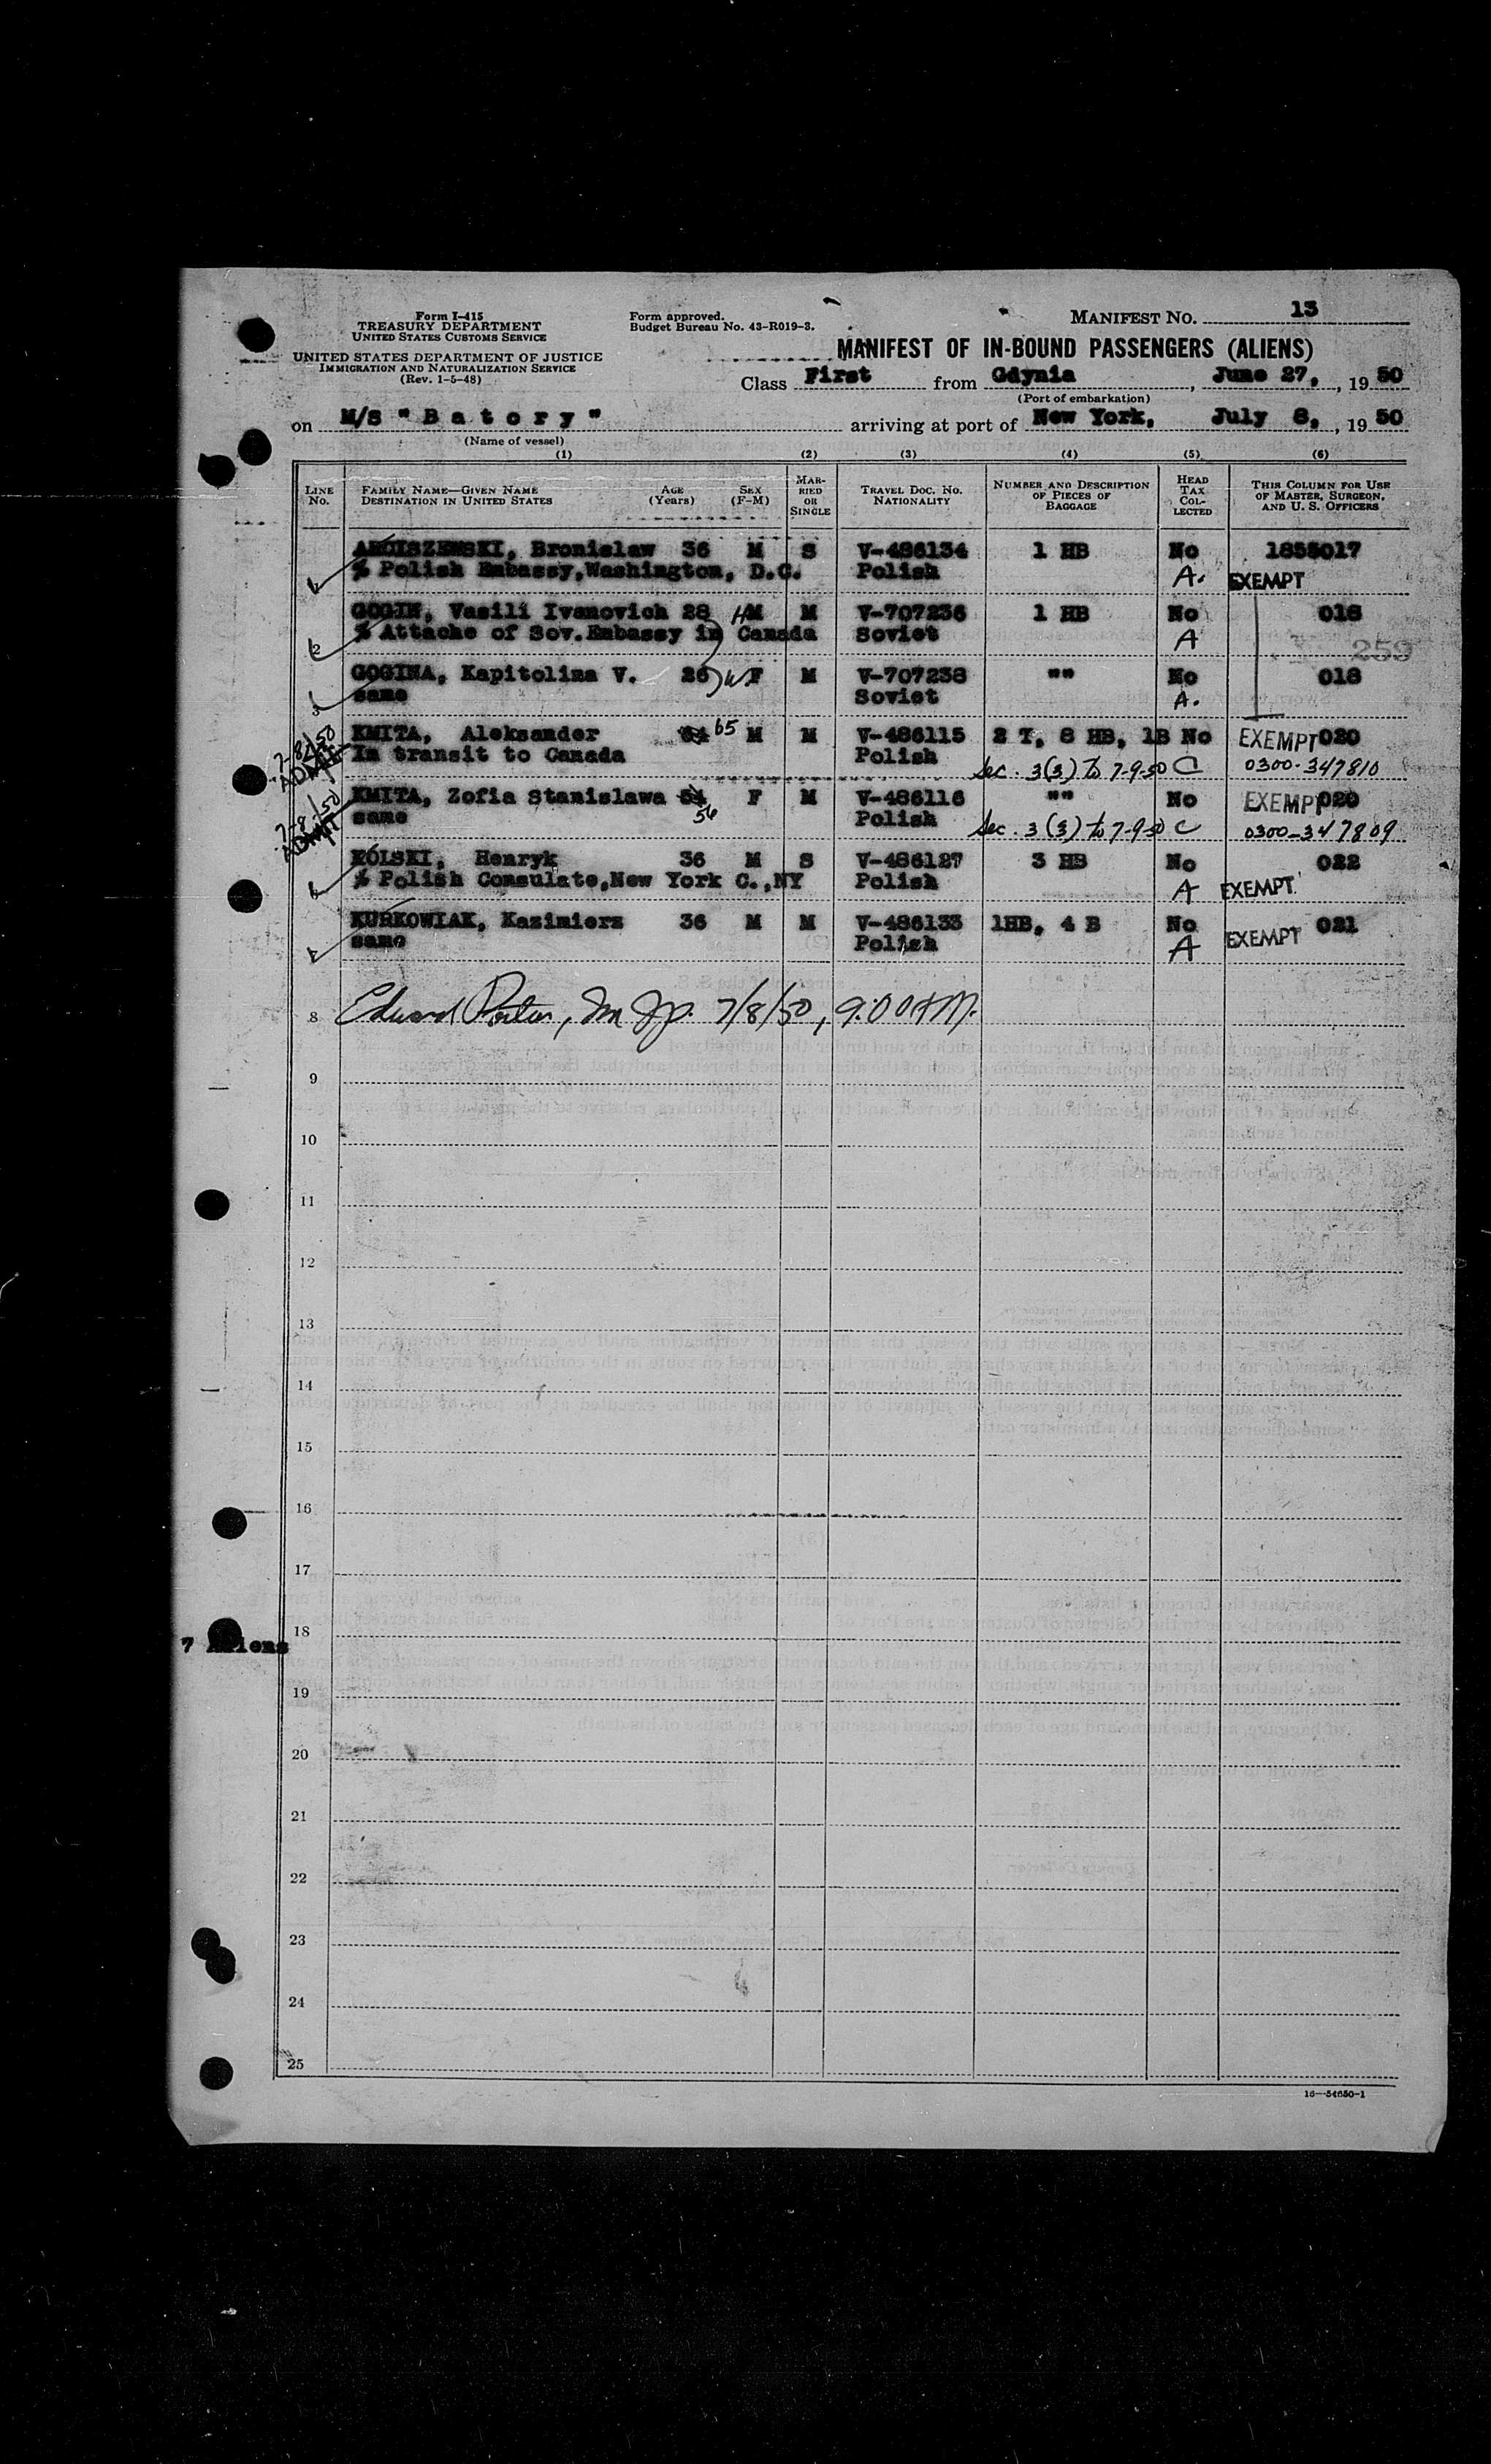 Form I-415
TREASURY DEPARTMENT
UNITED STATES CUSTOMS SERVICE
UNITED STATES DEPARTMENT OF JUSTICE
IMMIGRATION AND NATURALIZATION SERVICE
(Rev. 1-5-48)
Form approved.
Budget Bureau No. 43-R019-3.
MANIFEST NO. 13
MANIFEST OF IN-BOUND PASSENGERS (ALIENS)
Class First from Gdynia, June 27, 1950
(Port of embarkation)
on M/S "Batory" arriving at port of New York, July 8, 1950
(Name of vessel)
(1) (2) (3) (4) (5) (6)
LINE NO. FAMILY NAME—GIVEN NAME DESTINATION IN UNITED STATES AGE (Years) SEX (F-M) MARRIED OR SINGLE TRAVEL DOC. NO. NATIONALITY NUMBER AND DESCRIPTION OF PIECES OF BAGGAGE HEAD TAX COLLECTED THIS COLUMN FOR USE OF MASTER, SURGEON, AND U. S. OFFICERS
ARCISZEWSKI, Bronislaw 36 M S V-486134 1 HB No 1855017
% Polish Embassy, Washington, D.C. Polish A. EXEMPT
GOGIN, Vasili Ivanovich 28 H M M V-707236 1 HB No 018
2 % Attache of Sov. Embassy in Canada Soviet A 259
GOGINA, Kapitolina V. 26 W F M V-707238 "" No 018
3 same Soviet A.
7-8/50 KMITA, Aleksander 64 65 M M V-486115 2 T, 8 HB, 1B No EXEMPT 020
ADMIT In transit to Canada Polish Sec. 3(3) to 7-9-50 C 0300-347810
7-8/50 KMITA, Zofia Stanislawa 54 F M V-486116 "" No EXEMPT 020
ADMIT same 56 Polish Sec. 3(3) to 7-9-50 C 0300-347809
KOLSKI, Henryk 36 M S V-486127 3 HB No 022
% Polish Consulate, New York C., NY Polish A EXEMPT
KURKOWIAK, Kazimierz 36 M M V-486133 1HB, 4 B No 021
same Polish A EXEMPT
8 Edward Porter, Im Isp. 7/8/50, 9:00 AM.
9
10
11
12
13
14
15
16
17
18
7 Aliens
19
20
21
22
23
24
25
16—54650-1